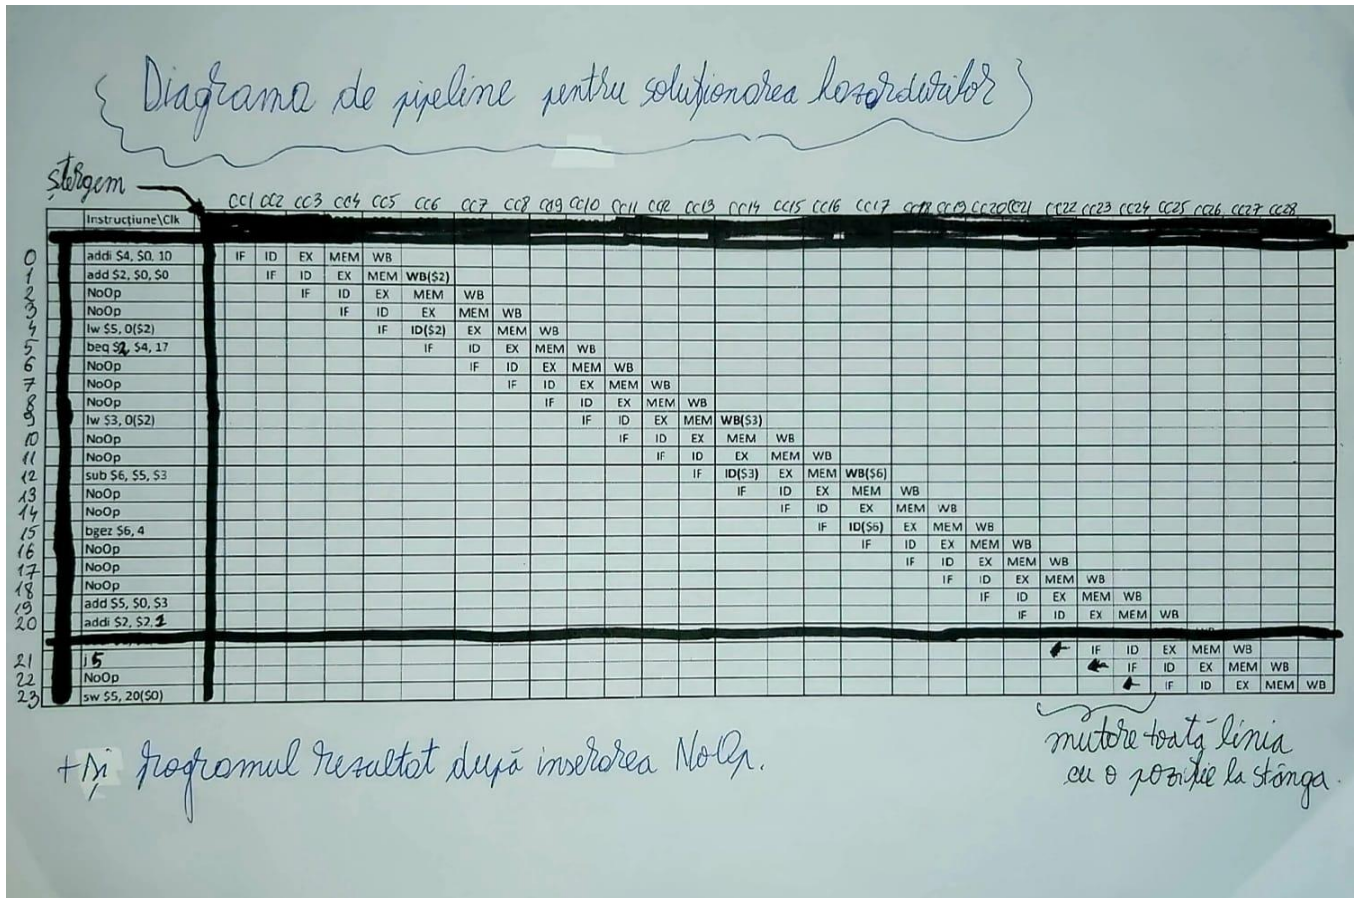 { Diagrama de pipeline pentru soluționarea hazardurilor }
ștergem
CC1 CC2 CC3 CC4 CC5 CC6 CC7 CC8 CC9 CC10 CC11 CC12 CC13 CC14 CC15 CC16 CC17 CC18 CC19 CC20 CC21 CC22 CC23 CC24 CC25 CC26 CC27 CC28
Instrucțiune\Clk
0 addi $4, $0, 10 IF ID EX MEM WB
1 add $2, $0, $0 IF ID EX MEM WB($2)
2 NoOp IF ID EX MEM WB
3 NoOp IF ID EX MEM WB
4 lw $5, 0($2) IF ID($2) EX MEM WB
5 beq $2, $4, 17 IF ID EX MEM WB
6 NoOp IF ID EX MEM WB
7 NoOp IF ID EX MEM WB
8 NoOp IF ID EX MEM WB
9 lw $3, 0($2) IF ID EX MEM WB($3)
10 NoOp IF ID EX MEM WB
11 NoOp IF ID EX MEM WB
12 sub $6, $5, $3 IF ID($3) EX MEM WB($6)
13 NoOp IF ID EX MEM WB
14 NoOp IF ID EX MEM WB
15 bgez $6, 4 IF ID($6) EX MEM WB
16 NoOp IF ID EX MEM WB
17 NoOp IF ID EX MEM WB
18 NoOp IF ID EX MEM WB
19 add $5, $0, $3 IF ID EX MEM WB
20 addi $2, $2, 1 IF ID EX MEM WB
21 j 5 IF ID EX MEM WB
22 NoOp IF ID EX MEM WB
23 sw $5, 20($0) IF ID EX MEM WB
mutare toată linia
cu o poziție la stânga.
+ și programul rezultat după inserarea NoOp.